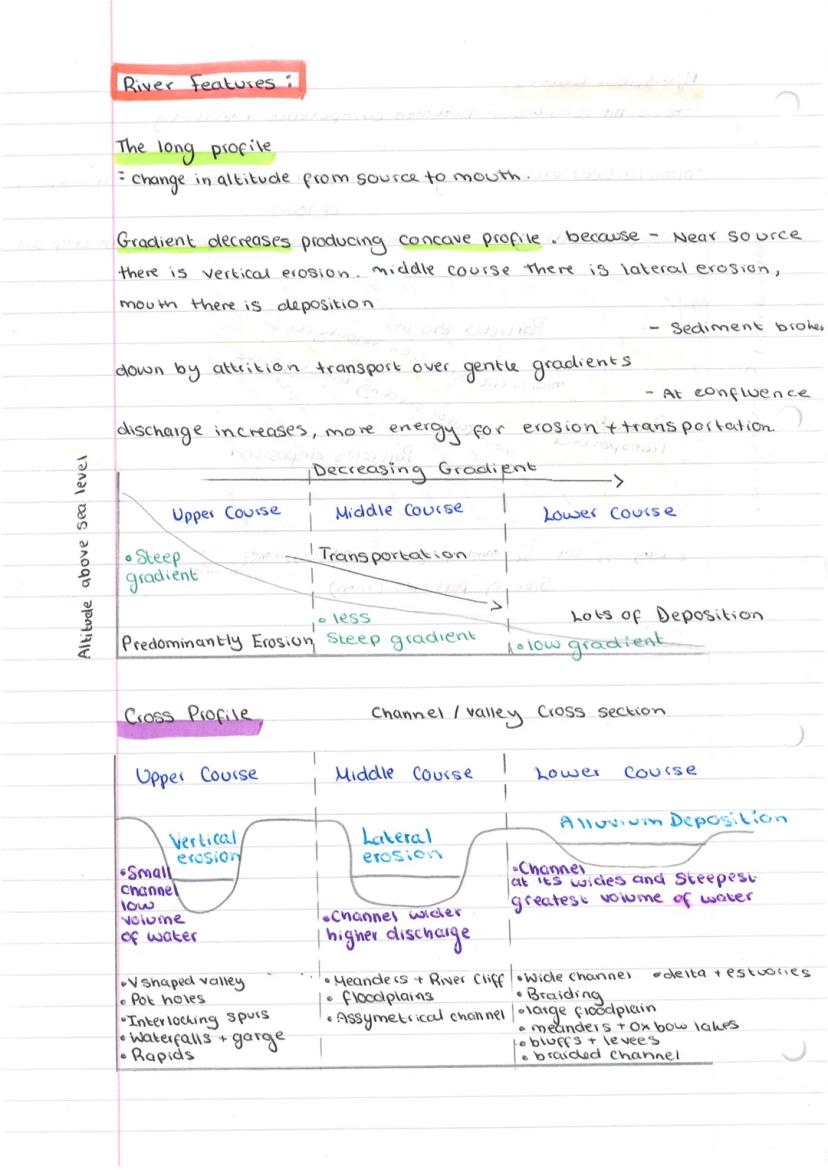 River Features :
The long profile
= change in altitude from source to mouth.
Gradient decreases producing concave profile. because - Near source
there is vertical erosion. middle course there is lateral erosion,
mouth there is deposition
- Sediment broken
down by attrition transport over gentle gradients
- At confluence
discharge increases, more energy for erosion + transportation.
Decreasing Gradient
Altitude above sea level
Upper Course
Middle Course
Lower Course
• Steep
gradient
Transportation
• less
Steep gradient
Lots of Deposition
Predominantly Erosion
• low gradient
Cross Profile
Channel / valley Cross section
Upper Course
Middle Course
Lower Course
Vertical
erosion
Lateral
erosion
Alluvium Deposition
• Small
channel
low
volume
of water
• Channel wider
higher discharge
• Channel
at its wides and Steepest
greatest volume of water
• V shaped valley
• Pot holes
• Interlocking spurs
• Waterfalls + garge
• Rapids
• Meanders + River Cliff
• floodplains
• Assymetrical channel
• Wide channel • delta + estuories
• Braiding
• large floodplain
• meanders + Ox bow lakes
• bluffs + levees
• braided channel